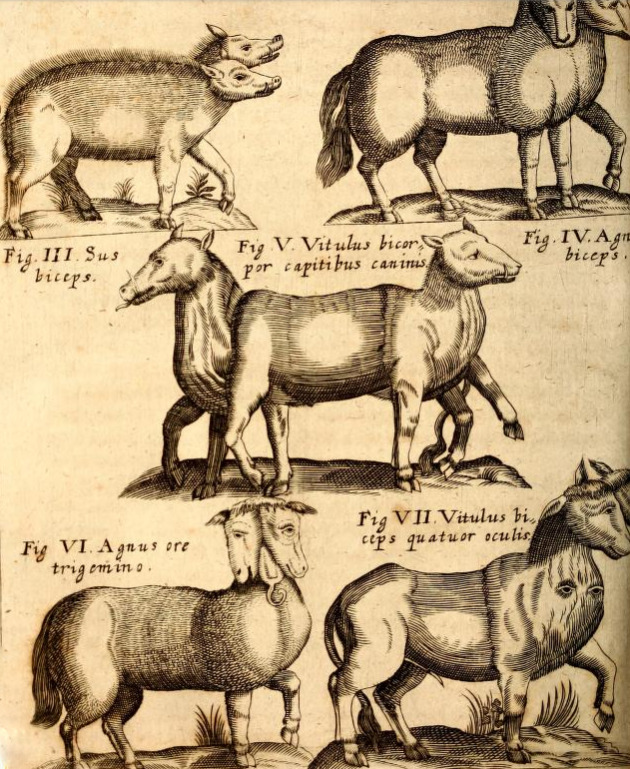 Fig. III. Sus
biceps.
Fig. V. Vitulus bicor,
por capitibus caninis.
Fig. IV. Agn
biceps.
Fig VI. Agnus ore
trigemino.
Fig VII. Vitulus bi,
ceps quatuor oculis.